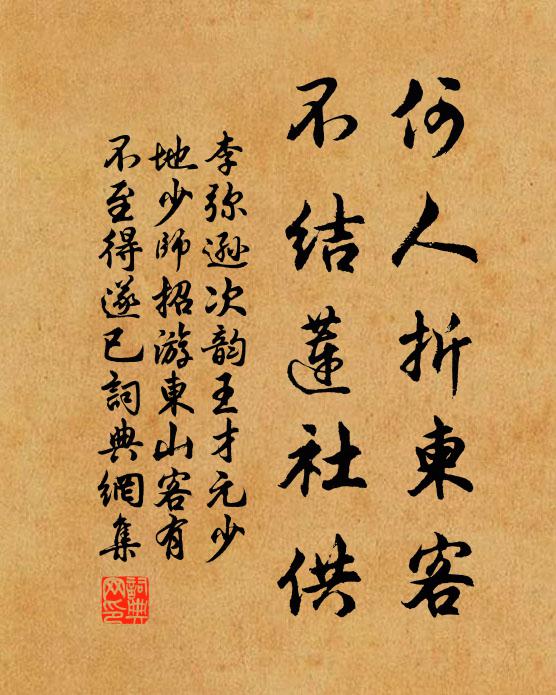 何人折東客
不结蓮社供
李弥遜次韵王才元少
地少師招游東山客有
不至得遂已詞典網集
詞典網印